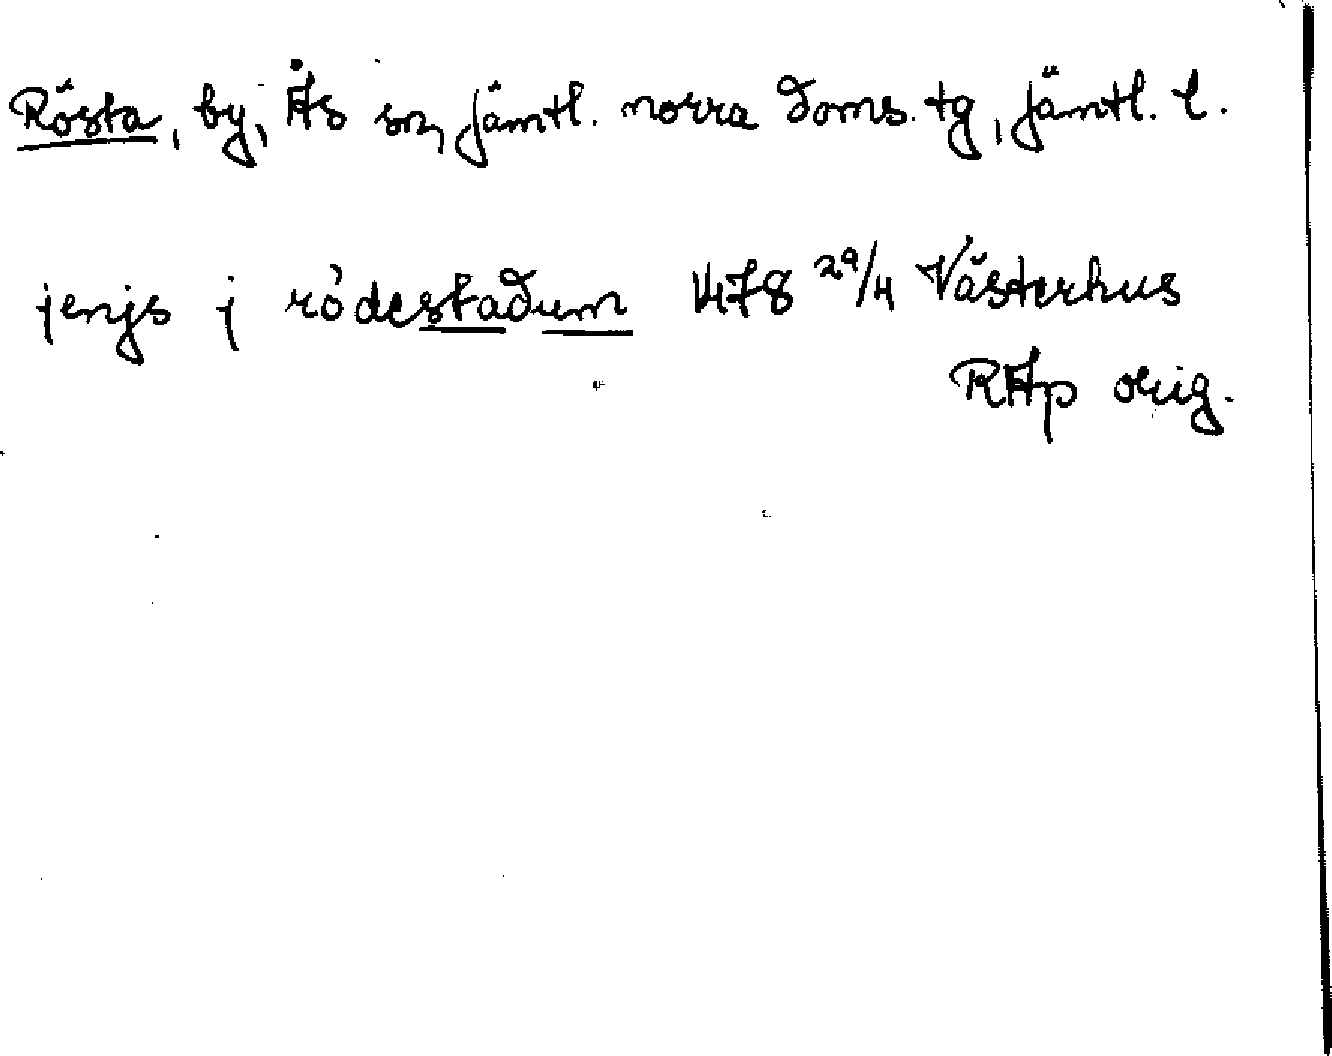 Rösta, by, Ås sn, Jämtl. norra doms. tg, Jämtl. l.
jenjs j ródestadum 1478 29/4 Västerhus
RAp orig.